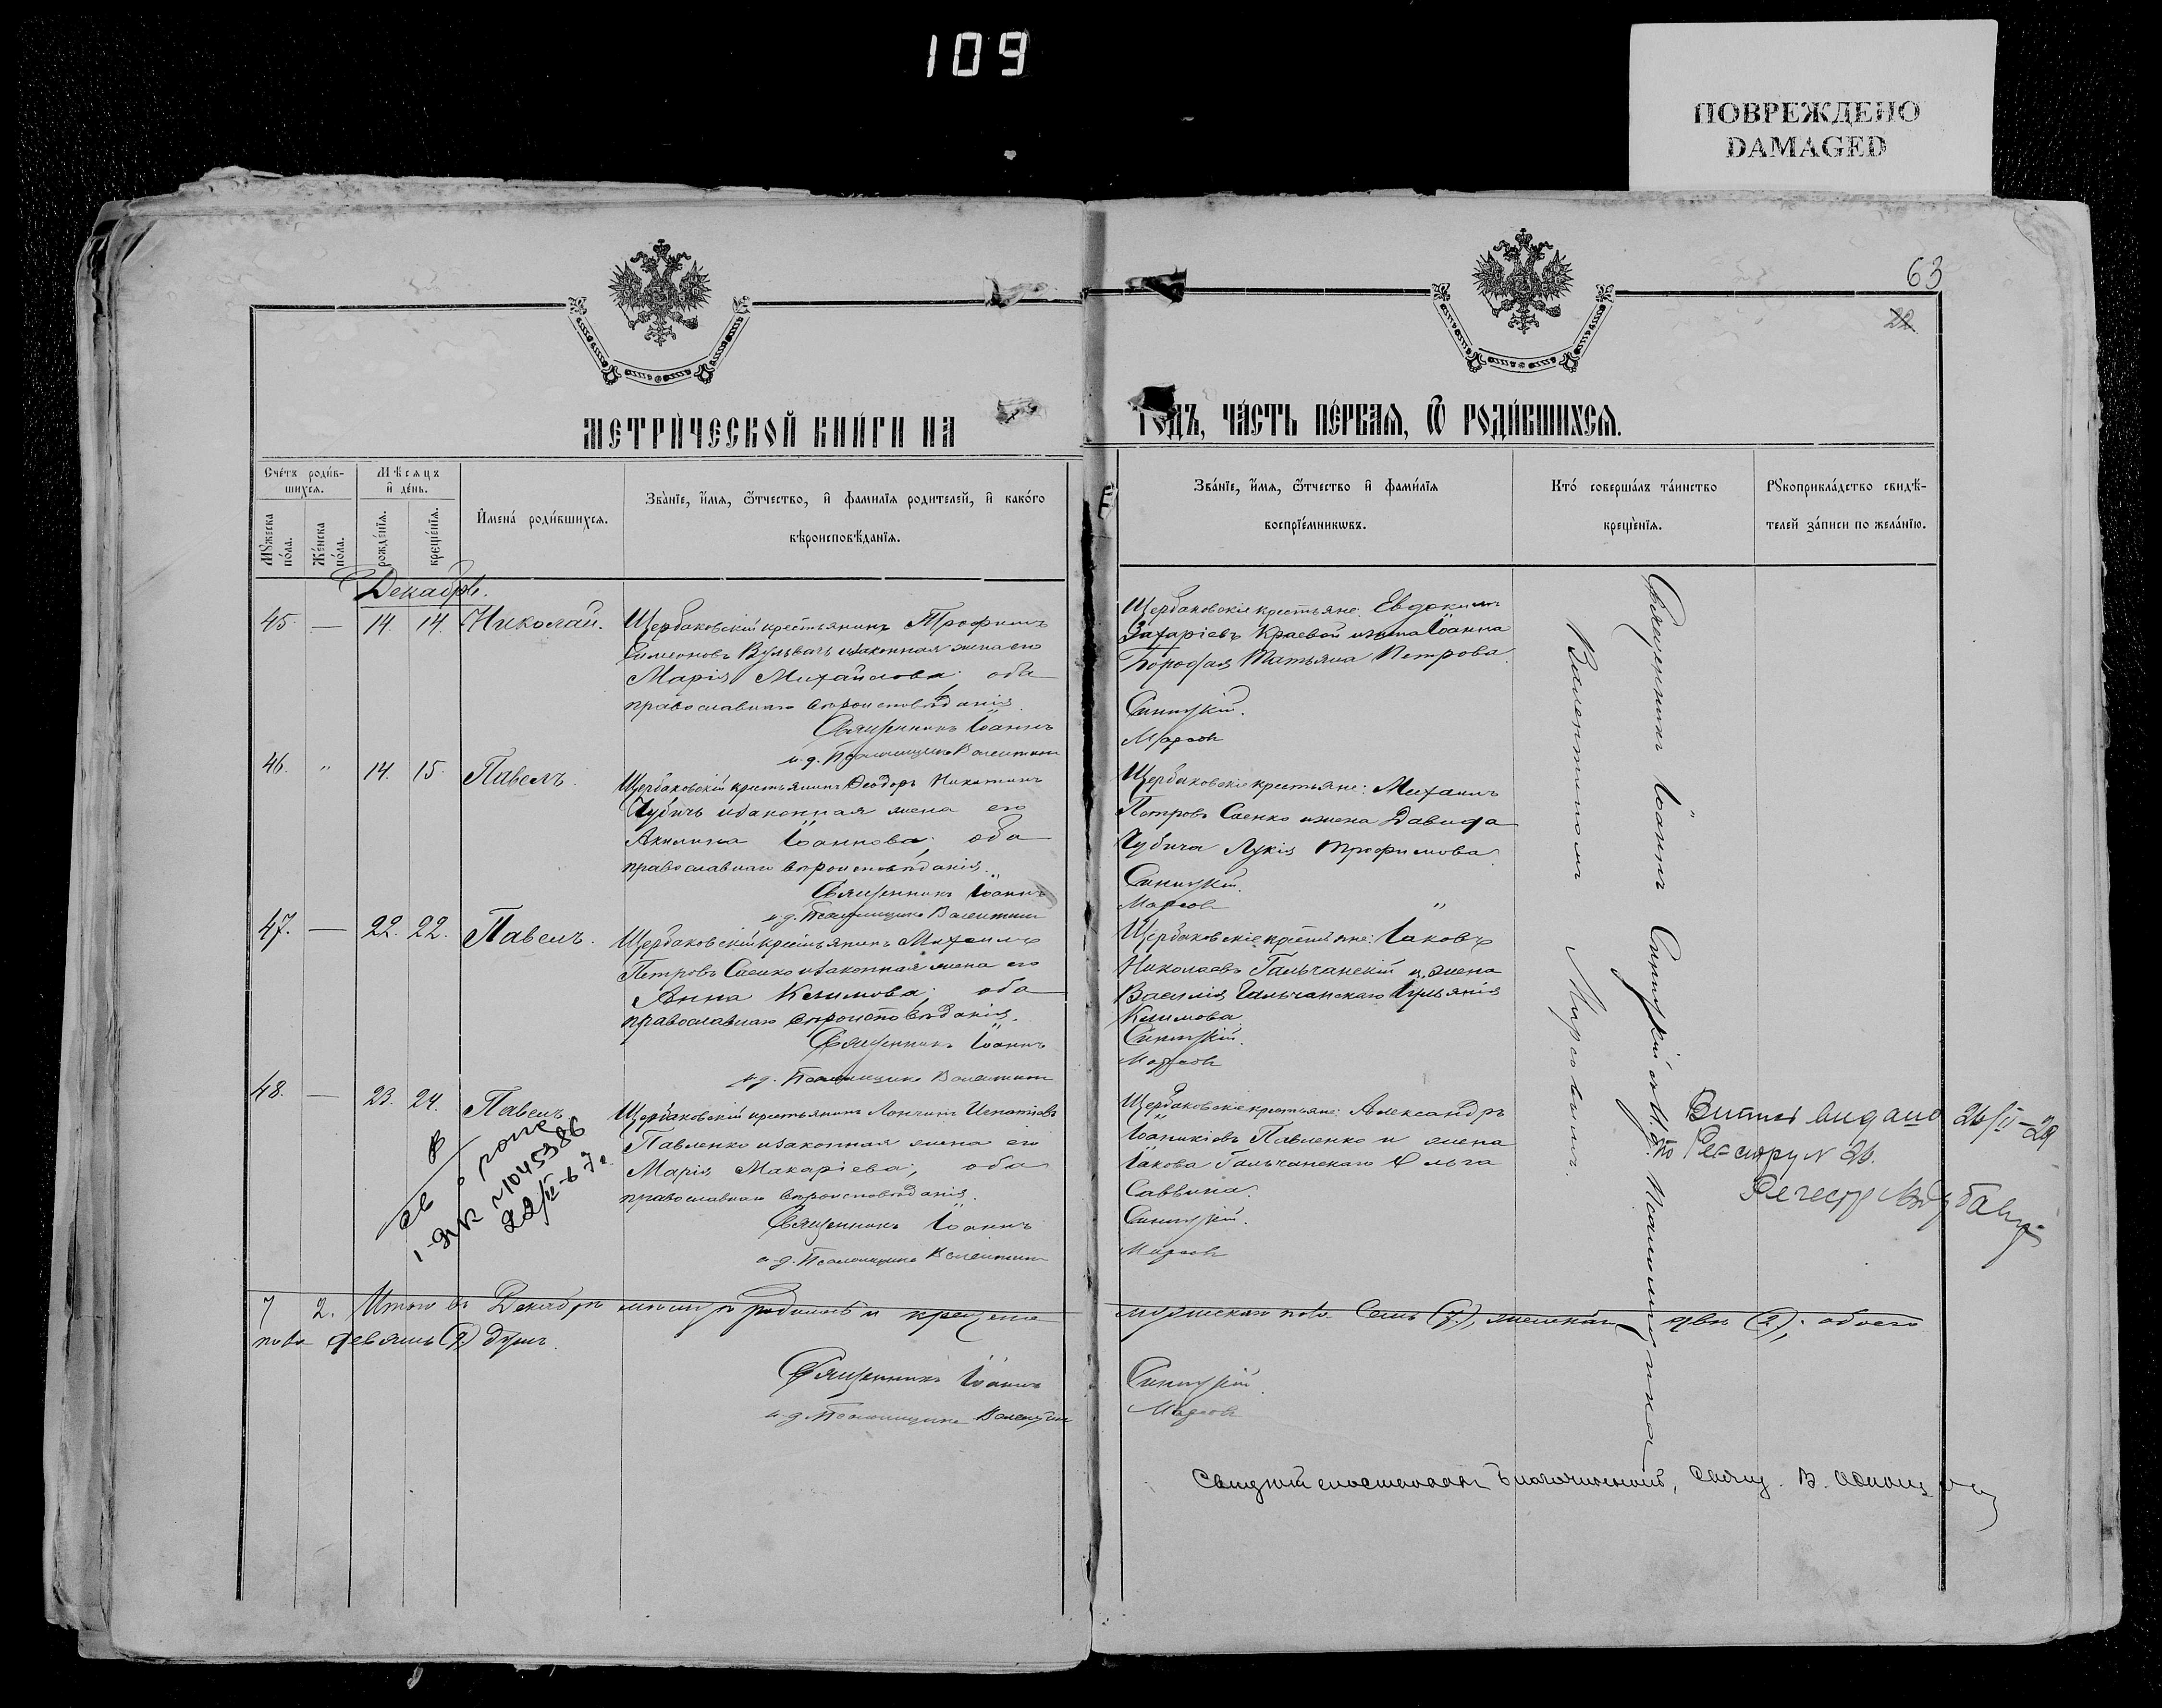 109
ПОВРЕЖДЕНО
DAMAGED
63
22
МЕТРИ́ЧЕСКОЙ КНИ́ГИ НА
ГОДЪ, ЧА́СТЬ ПЕ́РВАЯ, Ѿ РОДИ́ВШИХСЯ.
Сче́тъ роди́в-
шихся.
Мѣ́сяцъ
и҆ де́нь.
Му́жеска
по́ла.
Же́нска
по́ла.
рожде́нїя.
креще́нїя.
И҆мена́ роди́вшихся.
Зва́нїе, и҆́мя, ѻ҆́тчество, и҆ фами́лїя родителей, и҆ како́го
вѣроисповѣ́данїя.
Зва́нїе, и҆́мя, ѻ҆́тчество и҆ фами́лїя
воспрїе́мникѡвъ.
Кто́ соверша́лъ та́инство
креще́нїя.
Рꙋкоприкла́дство свидѣ́-
телей за́писи по жела́нїю.
Декабрь.
45. — 14. 14. Николай.
Щербаковскій крестьянинъ Трофимъ
Симеоновъ Вульвачъ и законная жена его
Марія Михайлова; оба
православнаго вѣроисповѣданія.
Священникъ Іоаннъ
и. д. Псаломщика Валентинъ
Щербаковскіе крестьяне: Евдокимъ
Захаріевъ Краевой и жена Іоанна
Татьяна Петрова.
Синицкій.
46. " 14. 15. Павелъ.
Щербаковскій крестьянинъ Ѳеодоръ Никитинъ
Чубичъ и законная жена его
Акилина Іоаннова; оба
православнаго вѣроисповѣданія.
Священникъ Іоаннъ
и. д. Псаломщика Валентинъ
Щербаковскіе крестьяне: Михаилъ
Петровъ Саенко и жена Давида
Чубича Лукія Трофимова.
Синицкій.
47. — 22. 22. Павелъ.
Щербаковскій крестьянинъ Михаилъ
Петровъ Саенко и законная жена его
Анна Климова; оба
православнаго вѣроисповѣданія.
Священникъ Іоаннъ
и. д. Псаломщика Валентинъ
Щербаковскіе крестьяне: Іаковъ
Николаевъ Гальчанскій и жена
Василія Гальчанскаго Іуліанія
Климова
Синицкій.
48. — 23. 24. Павелъ
Щербаковскій крестьянинъ Лонгинъ Игнатіевъ
Павленко и законная жена его
Марія Макаріева; оба
православнаго вѣроисповѣданія.
Священникъ Іоаннъ
и. д. Псаломщика Валентинъ
Щербаковскіе крестьяне: Александръ
Іоаникіевъ Павленко и жена
Іакова Гальчанскаго Ольга
Саввина.
Синицкій.
св о рожд
№ 1045386
22/II-67г.
Священникъ Іоаннъ Синицкій съ и. д. Псаломщика
Валентиномъ
Витяг видано 26/II–29
по Реєстру N 26.
7 2. Итого въ Декабрѣ мѣсяцѣ родилось и крещено
мужскаго пола семь (7), женскаго двѣ (2), обоего
пола девять (9) душъ.
Священникъ Іоаннъ
и. д. Псаломщика Валентинъ
Синицкій.
благочинный, свящ. В.